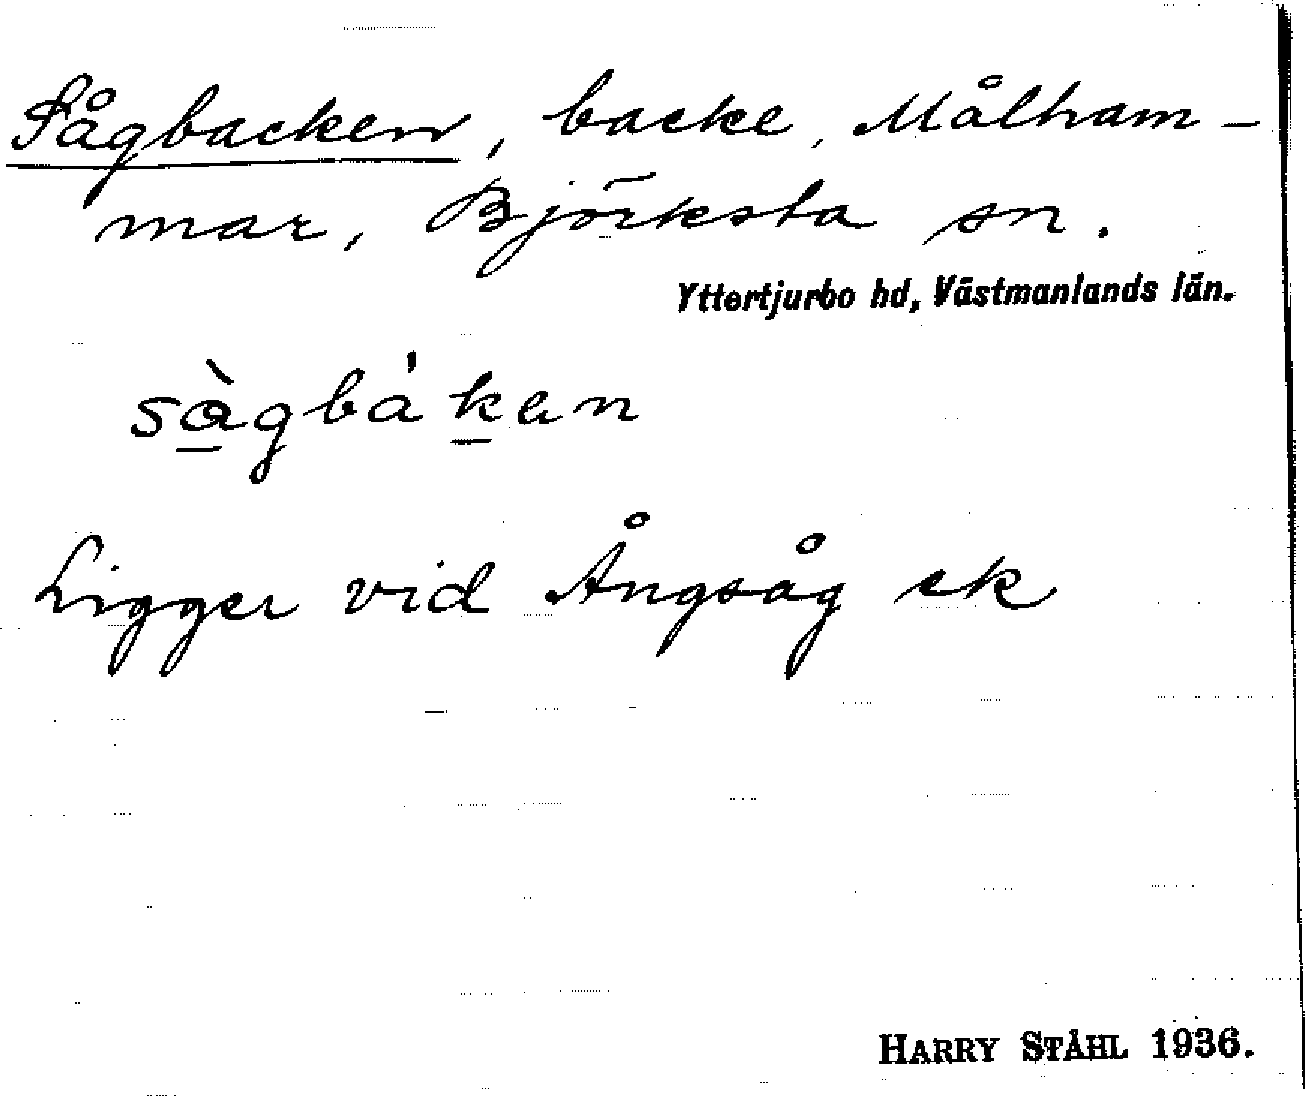 Sågbacken, backe, Målham-
mar, Björksta sn.
Yttertjurbo hd, Västmanlands län.
sàgbákan
Ligger vid Ångsåg ek
HARRY STÅHL 1936.